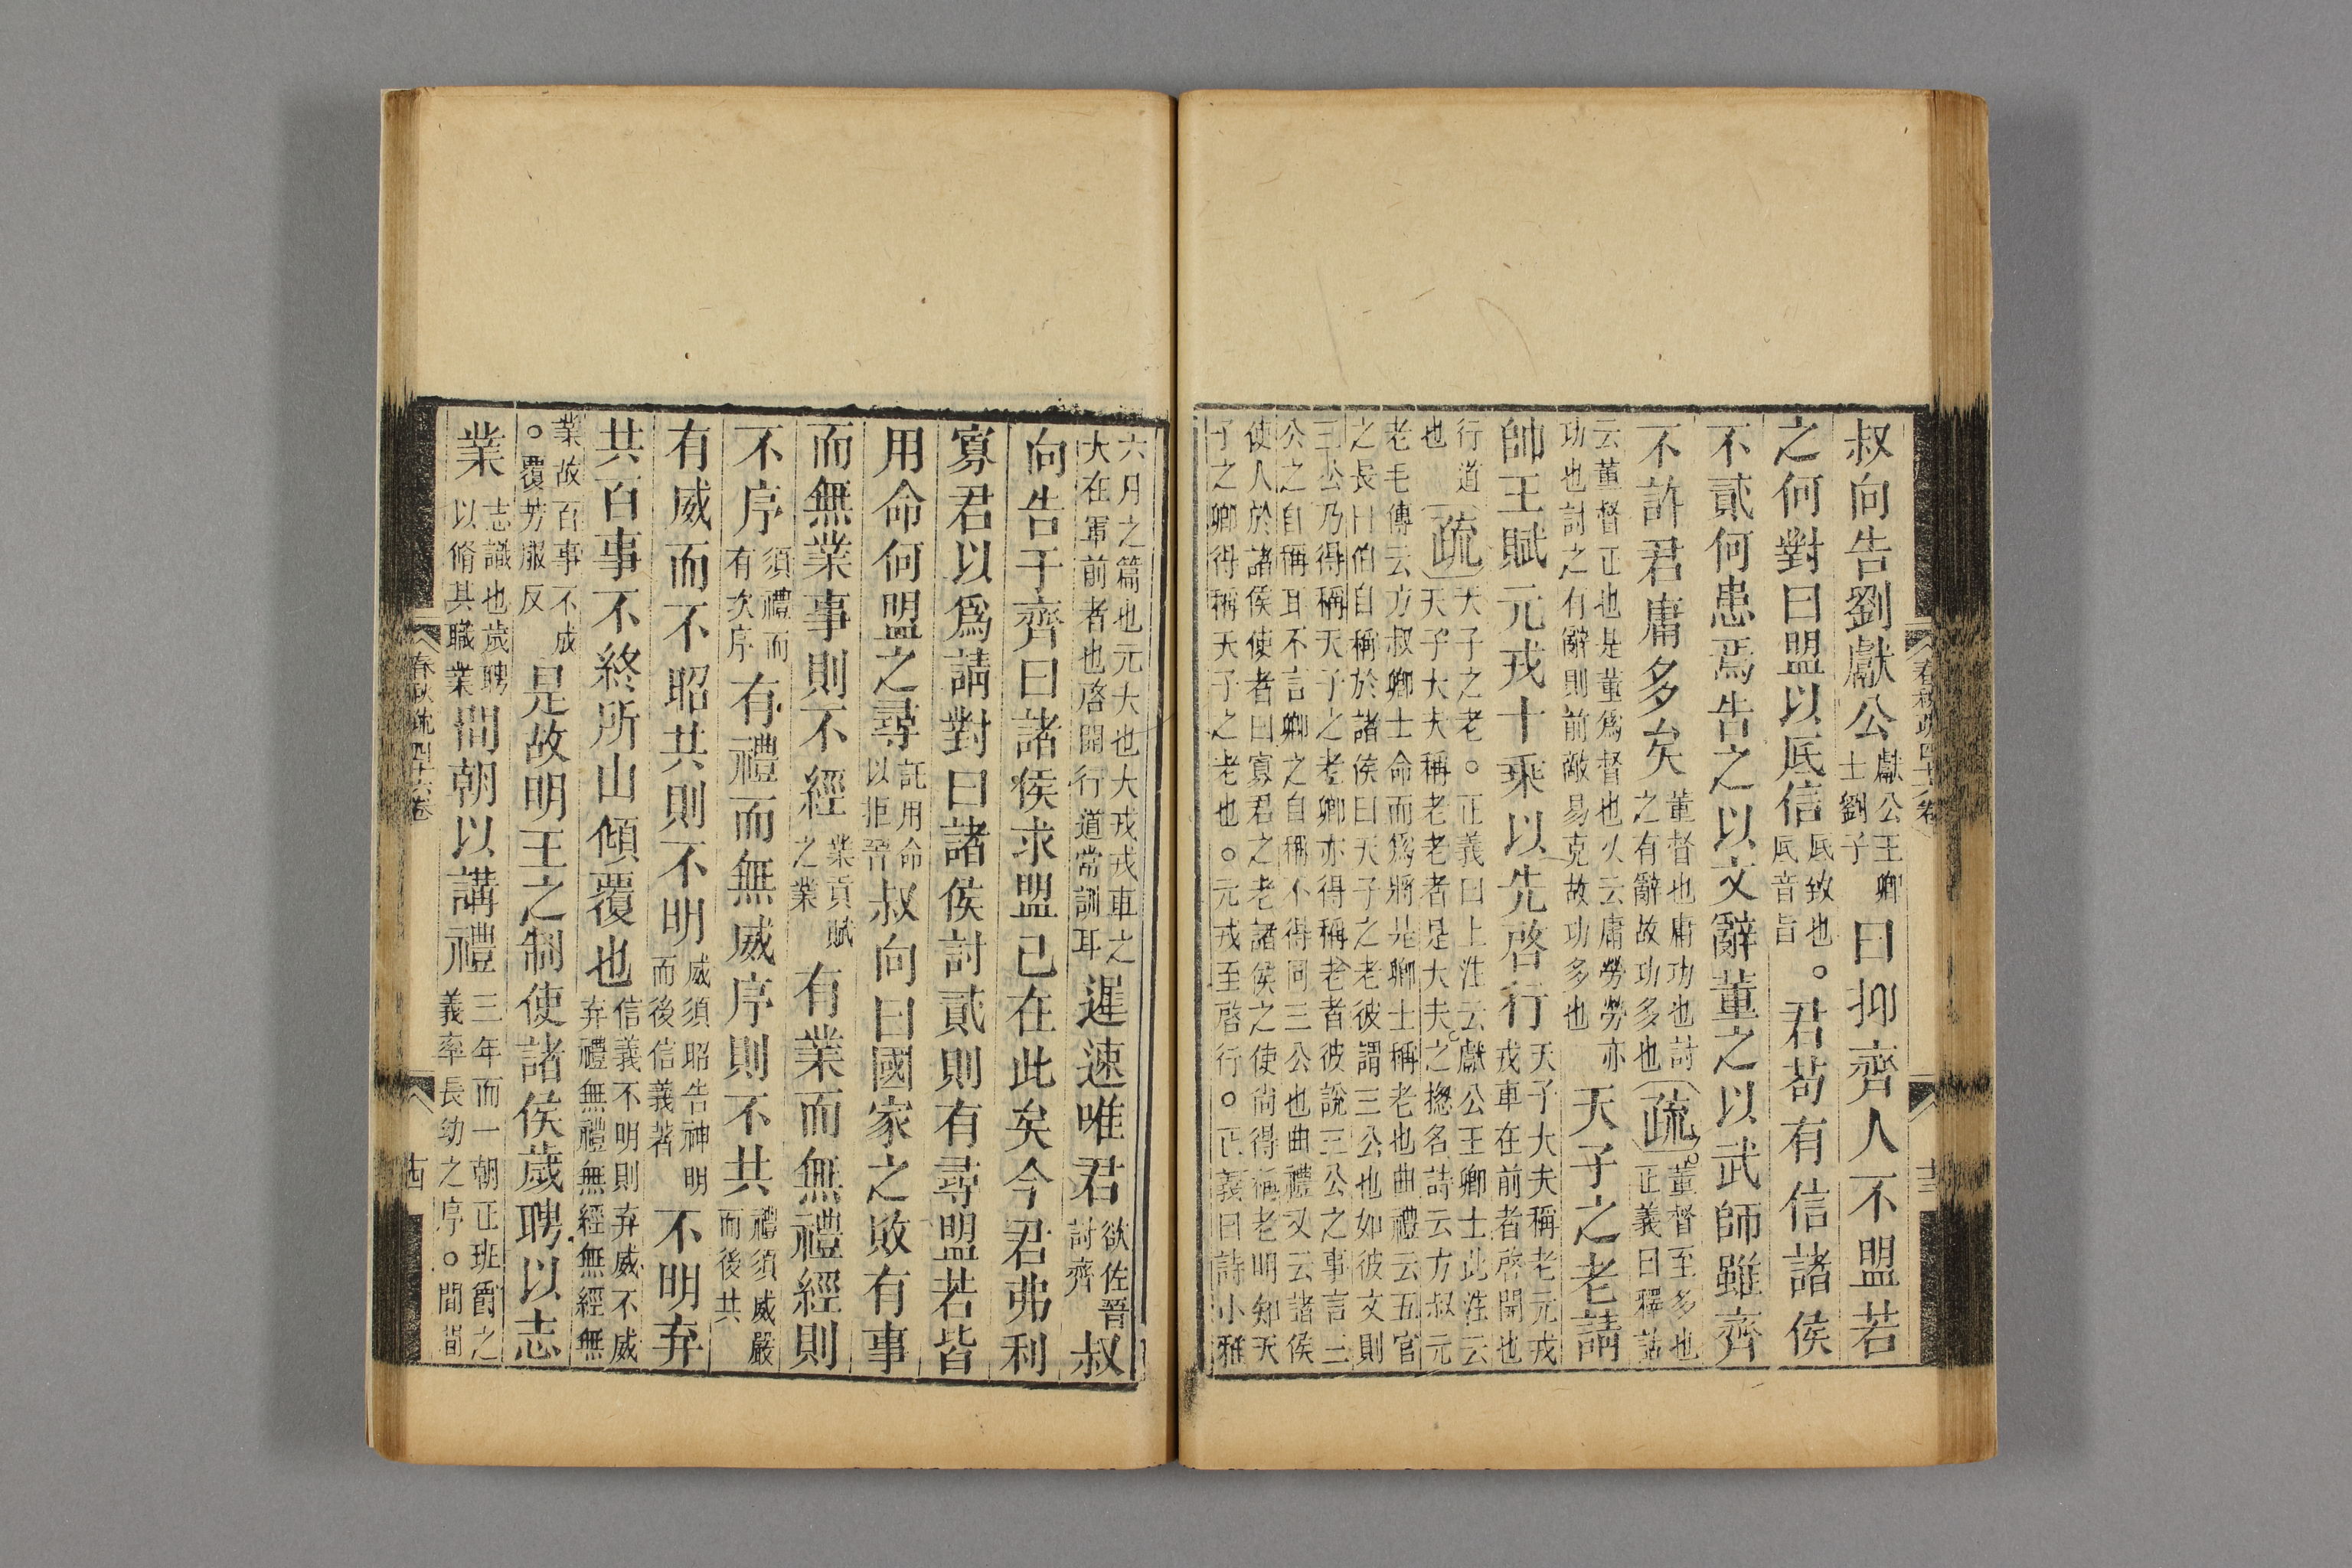 叔向告劉獻公獻公王卿士劉子曰抑齊人不盟若
之何對曰盟以厎信厎致也。厎音旨君苟有信諸侯
不貳何患焉告之以文辭董之以武師雖齊
不許君庸多矣董督也庸功也討之有辭故功多也疏董督至多也。正義曰釋詁
云董督正也是董爲督也火云庸勞勞亦功也討之有辭則前敵易克故功多也天子之老請
帥王賦元戎十乘以先啓行天子大夫稱老元戎戎車在前者啓開也
行道也疏天子之老。正義曰上注云獻公王卿士此注云天子大夫稱老老者是大夫之摠名詩云方叔元
老毛傳云方叔卿士命而爲將是卿士稱老也曲禮云五官之長曰伯自稱於諸侯曰天子之老彼謂三公也如彼文則
三公乃得稱天子之老卿亦得稱老者彼說三公之事言三公之自稱耳不言卿之自稱不得同三公也曲禮又云諸侯
使人於諸侯使者曰寡君之老諸侯之使尚得稱老明知天子之卿得稱天子之老也。元戎至啓行。正義曰詩小雅
六月之篇也元大也大戎戎車之大在軍前者也啓開行道常訓耳遲速唯君欲佐晉討齊叔
向告于齊曰諸侯求盟已在此矣今君弗利
寡君以爲請對曰諸侯討貳則有尋盟若皆
用命何盟之尋託用命以拒晉叔向曰國家之敗有事
而無業事則不經業貢賦之業有業而無禮經則
不序須禮而有次序有禮而無威序則不共禮須威嚴而後共
有威而不昭共則不明威須昭告神明而後信義著不明弃
共百事不終所由傾覆也信義不明則弃威不威弃禮無禮無經無經無
業故百事不成。覆芳服反是故明王之制使諸侯歲聘以志
業志識也歲聘以脩其職業間朝以講禮三年而一朝正班爵之義率長幼之序。間間
春秋疏四十六卷
十三
春秋疏四十六卷
十四